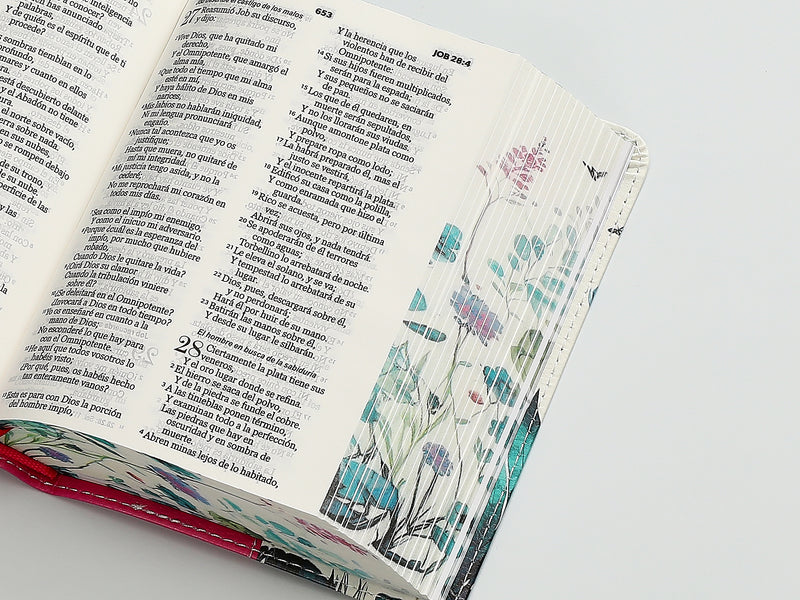 inteligencia
en has anunciado
palabras,
Y de quién es el espíritu que de ti
procede?
s sombras tiemblan en lo
profundo,
mares y cuanto en ellos
está descubierto delante
y el Abadón no tiene
e el norte sobre vacío,
ierra sobre nada.
en sus nubes,
se rompen debajo
de su trono,
su nube.
perficie de las
y las
el castigo de los malos
27 Reasumió Job su discurso,
y dijo:
Vive Dios, que ha quitado mi
derecho,
Y el Omnipotente, que amargó el
alma mía,
Que todo el tiempo que mi alma
esté en mí,
Y haya hálito de Dios en mis
narices,
Mis labios no hablarán iniquidad,
Ni mi lengua pronunciará
engaño.
Nunca tal acontezca que yo os
justifique;
Hasta que muera, no quitaré de
mí mi integridad.
Mi justicia tengo asida, y no la
cederé;
No me reprochará mi corazón en
todos mis días.
Sea como el impío mi enemigo,
Y como el inicuo mi adversario.
Porque ¿cuál es la esperanza del
impío, por mucho que hubiere
robado,
Cuando Dios le quitare la vida?
¿Oirá Dios su clamor
Cuando la tribulación viniere
sobre él?
¿Se deleitará en el Omnipotente?
¿Invocará a Dios en todo tiempo?
Yo os enseñaré en cuanto a la
mano de Dios;
No esconderé lo que hay para
con el Omnipotente.
He aquí que todos vosotros lo
habéis visto;
¿Por qué, pues, os habéis hecho
tan enteramente vanos?
13 Esta es para con Dios la porción
del hombre impío,
653
JOB 28:4
Y la herencia que los
violentos han de recibir del
Omnipotente:
14 Si sus hijos fueren multiplicados,
serán para la espada;
Y sus pequeños no se saciarán
de pan.
15 Los que de él quedaren, en
muerte serán sepultados,
Y no los llorarán sus viudas.
16 Aunque amontone plata como
polvo,
Y prepare ropa como lodo;
17 La habrá preparado él, mas el
justo se vestirá,
Y el inocente repartirá la plata.
18 Edificó su casa como la polilla,
Y como enramada que hizo el
guarda.
19 Rico se acuesta, pero por última
vez;
Abrirá sus ojos, y nada tendrá.
20 Se apoderarán de él terrores
como aguas;
Torbellino lo arrebatará de noche.
21 Le eleva el solano, y se va;
Y tempestad lo arrebatará de su
lugar.
22 Dios, pues, descargará sobre él,
y no perdonará;
Hará él por huir de su mano.
23 Batirán las manos sobre él,
Y desde su lugar le silbarán.
El hombre en busca de la sabiduría
28 Ciertamente la plata tiene sus
veneros,
Y el oro lugar donde se refina.
2 El hierro se saca del polvo,
Y de la piedra se funde el cobre.
3 A las tinieblas ponen término,
Y examinan todo a la perfección,
Las piedras que hay en
oscuridad y en sombra de
muerte.
4 Abren minas lejos de lo habitado,